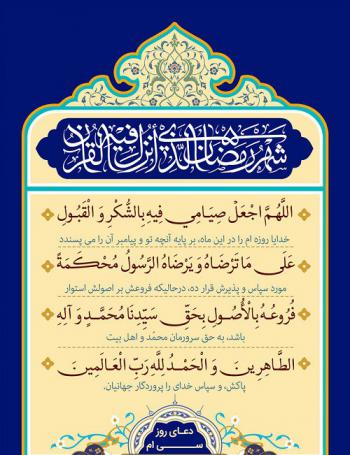 شهر رمضان الذي أنزل فيه القرآن
اللَّهُمَّ اجْعَلْ صِيَامِي فِيهِ بِالشُّكْرِ وَ الْقَبُولِ
خدایا روزه ام را در این ماه، بر پایه آنچه تو و پیامبر آن را می پسندد
عَلَى مَا تَرْضَاهُ وَ يَرْضَاهُ الرَّسُولُ مُحْكَمَةً
مورد سپاس و پذیرش قرار ده، درحالیکه فروعش بر اصولش استوار
فُرُوعُهُ بِالْأُصُولِ بِحَقِّ سَيِّدِنَا مُحَمَّدٍ وَ آلِهِ
باشد، به حق سرورمان محمد و اهل بیت
الطَّاهِرِينَ وَ الْحَمْدُ لِلَّهِ رَبِّ الْعَالَمِينَ
پاکش، و سپاس خدای را پروردگار جهانیان.
دعای روز
سی ام